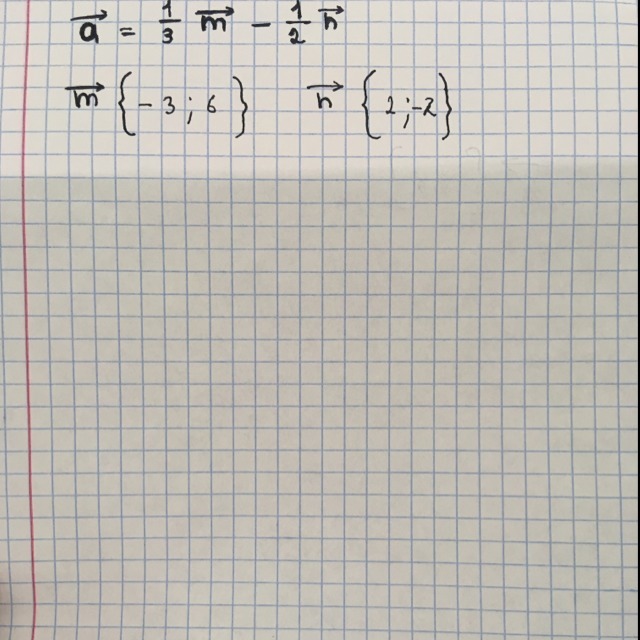 a⃗ = 1/3 m⃗ − 1/2 n⃗
m⃗ {-3; 6} n⃗ {2;-2}